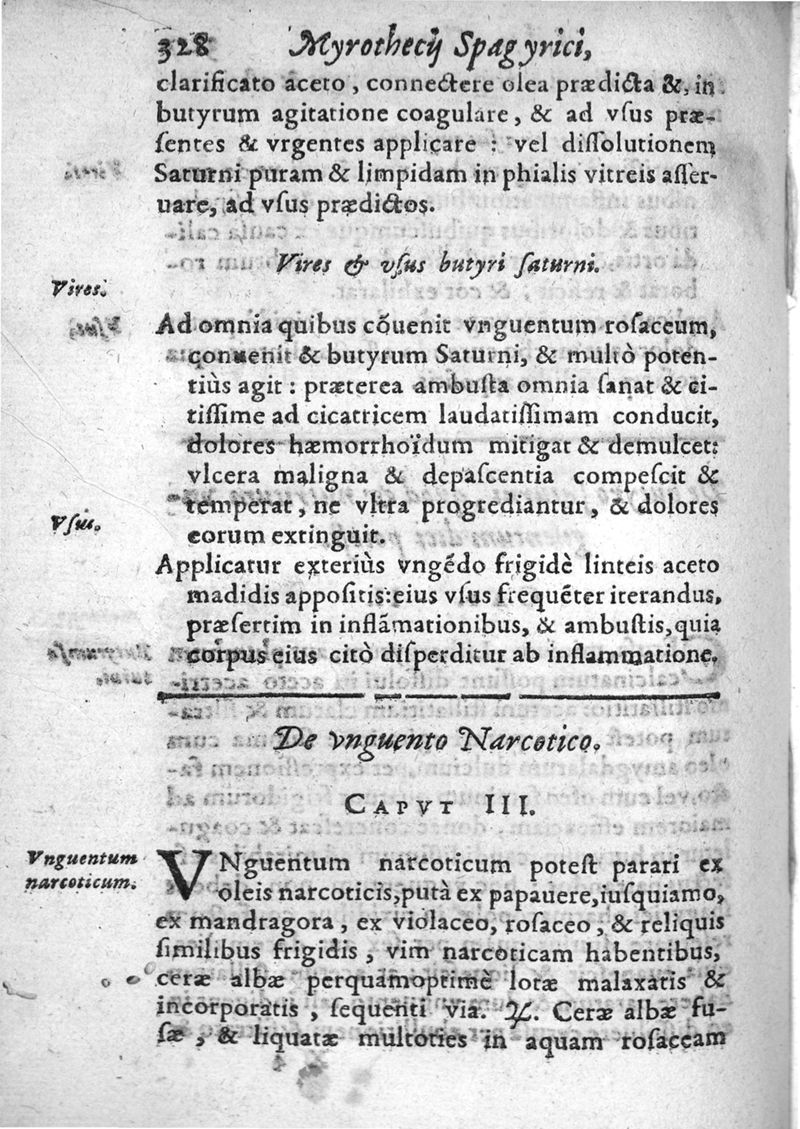 328 Myrothecij Spagyrici,
clarificato aceto, connectere olea prædicta &, in
butyrum agitatione coagulare, & ad vſus præ-
ſentes & vrgentes applicare : vel diſſolutionem
Saturni puram & limpidam in phialis vitreis aſſer-
uare, ad vſus prædictos.
Vires & vſus butyri ſaturni.
Vires.
Ad omnia quibus cõuenit vnguentum roſaceum,
conuenit & butyrum Saturni, & multò poten-
tiùs agit : præterea ambuſta omnia ſanat & ci-
tiſſime ad cicatricem laudatiſſimam conducit,
dolores hæmorrhoïdum mitigat & demulcet:
vlcera maligna & depaſcentia compeſcit &
temperat, ne vltra progrediantur, & dolores
Vſus.
eorum extinguit.
Applicatur exteriùs vngẽdo frigidè linteis aceto
madidis appoſitis: eius vſus frequẽter iterandus,
præſertim in inflãmationibus, & ambuſtis, quia
corpus eius citò diſperditur ab inflammatione.
De vnguento Narcotico.
CAPVT III.
Vnguentum
narcoticum.
VNguentum narcoticum poteſt parari ex
oleis narcoticis, putà ex papauere, iuſquiamo,
ex mandragora, ex violaceo, roſaceo, & reliquis
ſimilibus frigidis, vim narcoticam habentibus,
ceræ albæ perquàmoptimè lotæ malaxatis &
incorporatis, ſequenti via. ℞. Ceræ albæ fu-
ſæ, & liquatæ multoties in aquam roſaceam